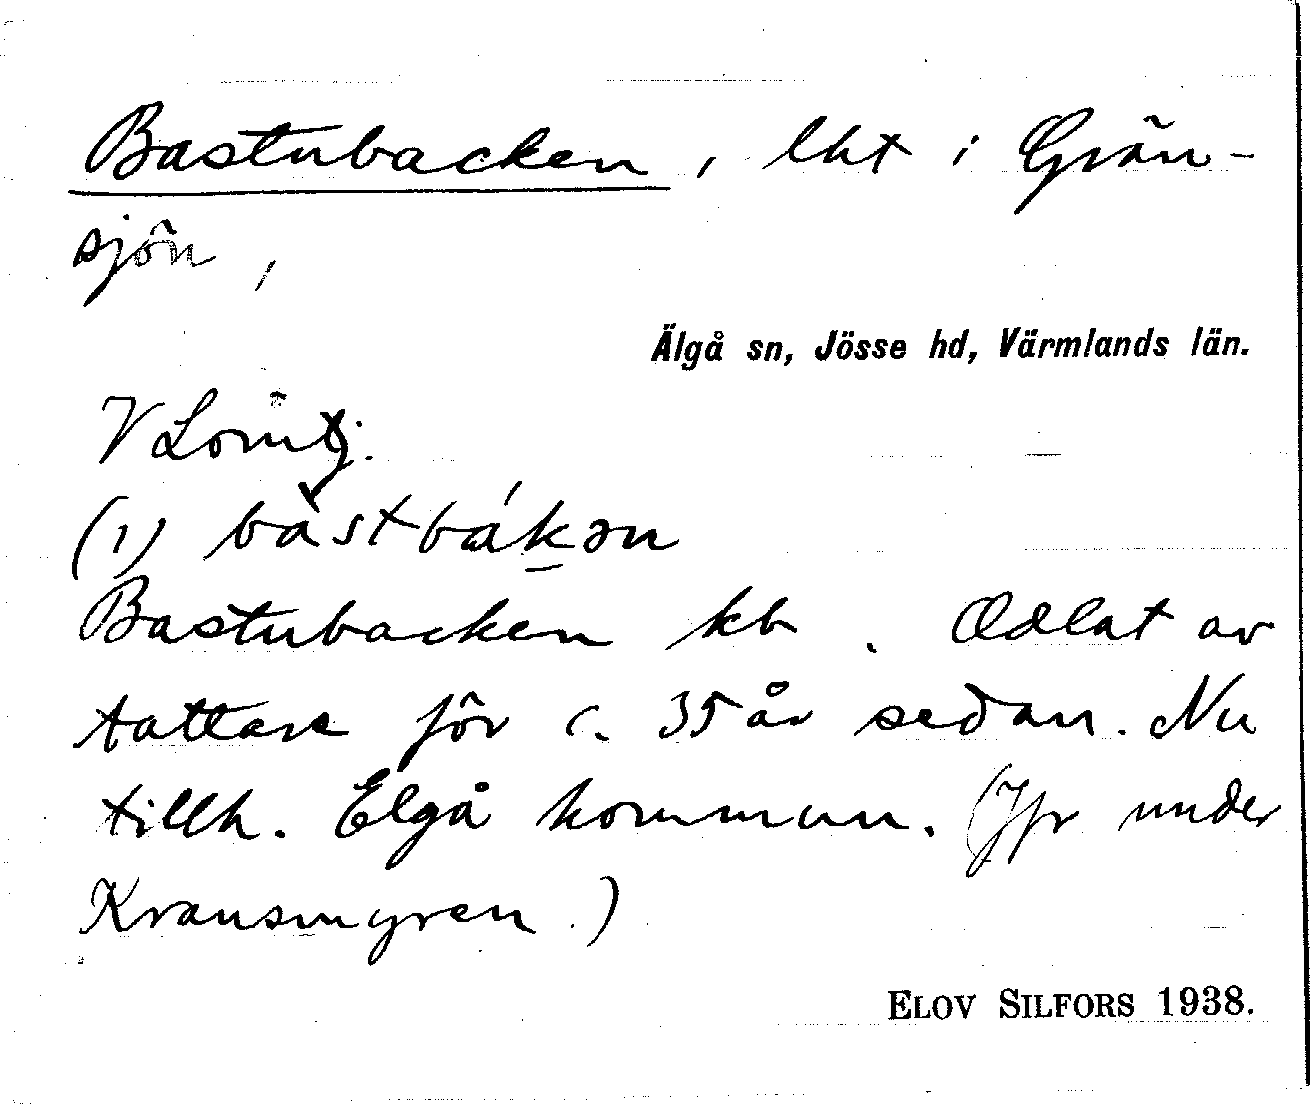 Bastubacken, lht i Grän-
sjön,
Älgå sn, Jösse hd, Värmlands län.
V Lomtj.
(1) bàstbákən
Bastubacken kb. Odlat av
tattare för c. 35 år sedan. Nu
tillh. Elgå kommun. (Jfr under
Kransmyren.)
ELOV SILFORS 1938.